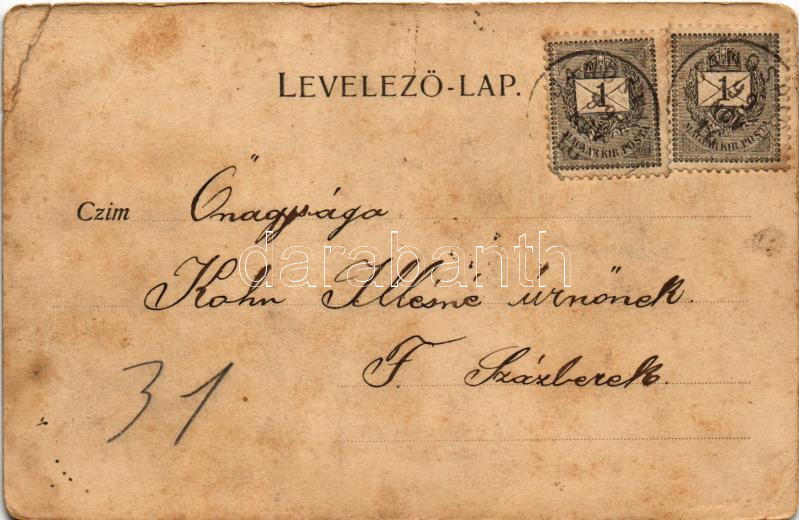 LEVELEZŐ-LAP.
1
MAGYAR KIR. POSTA
1
MAGYAR KIR. POSTA
Czim Őnagysága
darabanth
Kohn Illésné úrnőnek.
F. Százberek.
31